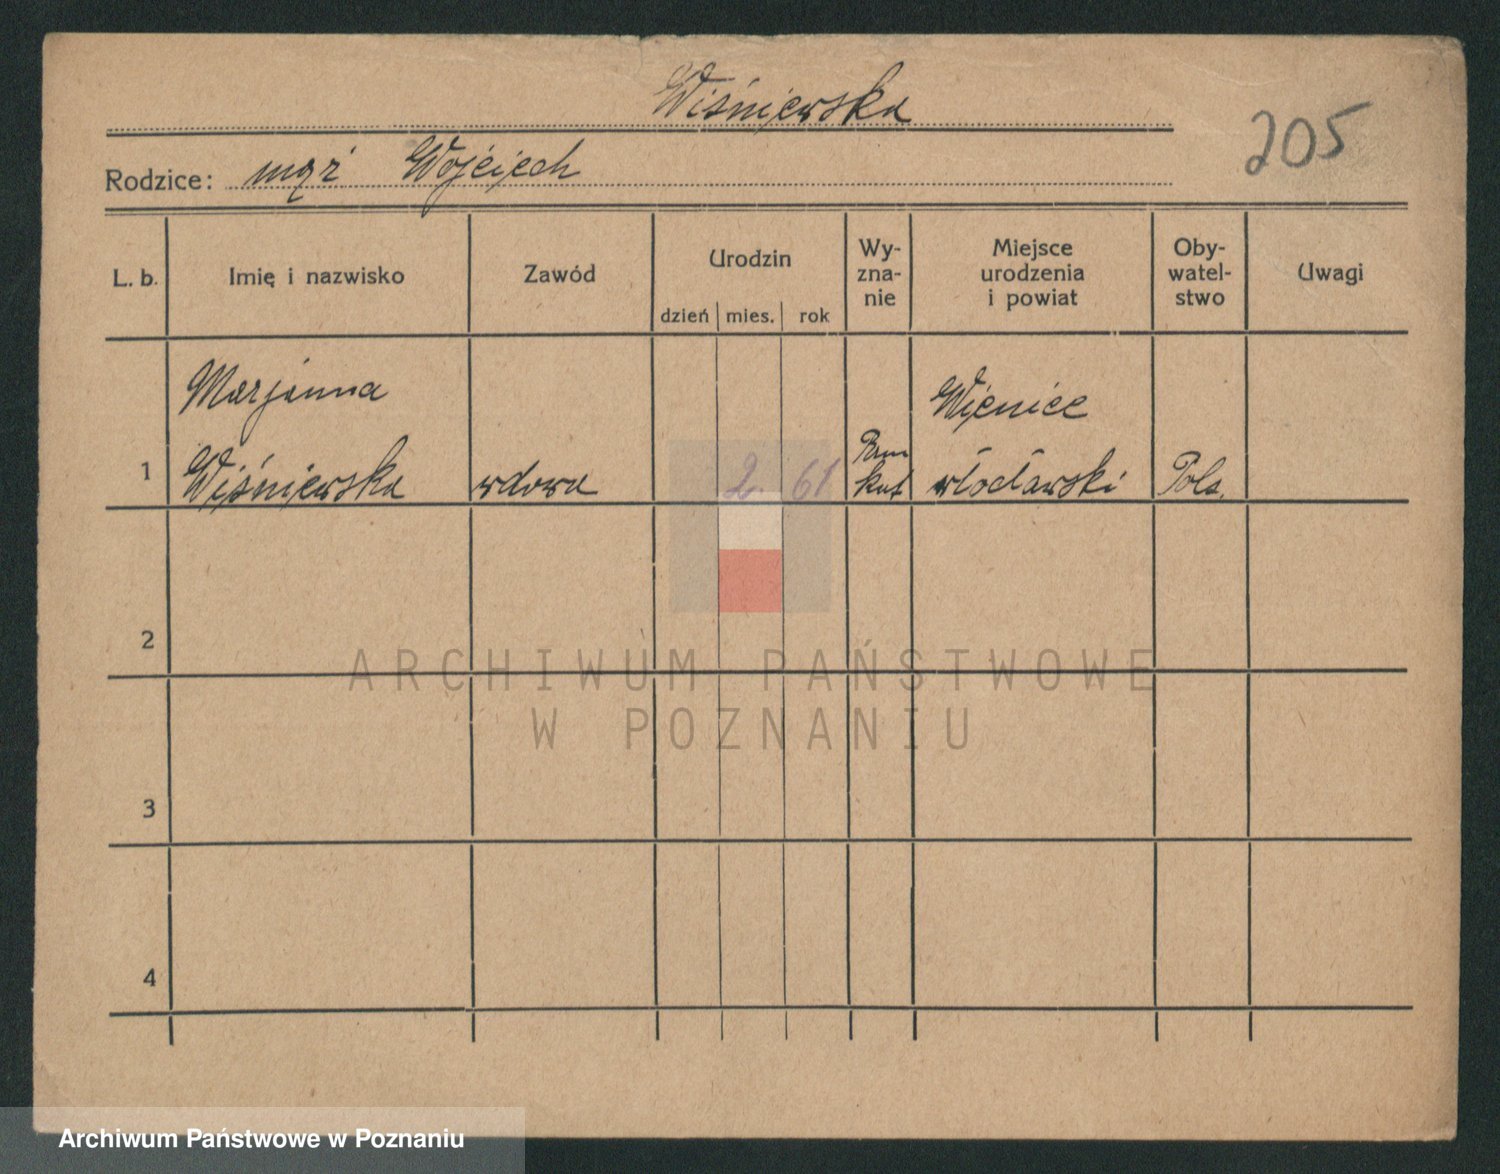 Wiśniewska
205
Rodzice: mąż Wojciech
L. b.
Imię i nazwisko
Zawód
Urodzin
dzień mies. rok
Wy-
zna-
nie
Miejsce
urodzenia
i powiat
Oby-
watel-
stwo
Uwagi
Marjanna
Wienice
1 Wiśniewska wdowa 2. 61 Rzm kat włocławski Pols.
2
3
4
ARCHIWUM PAŃSTWOWE
W POZNANIU
Archiwum Państwowe w Poznaniu